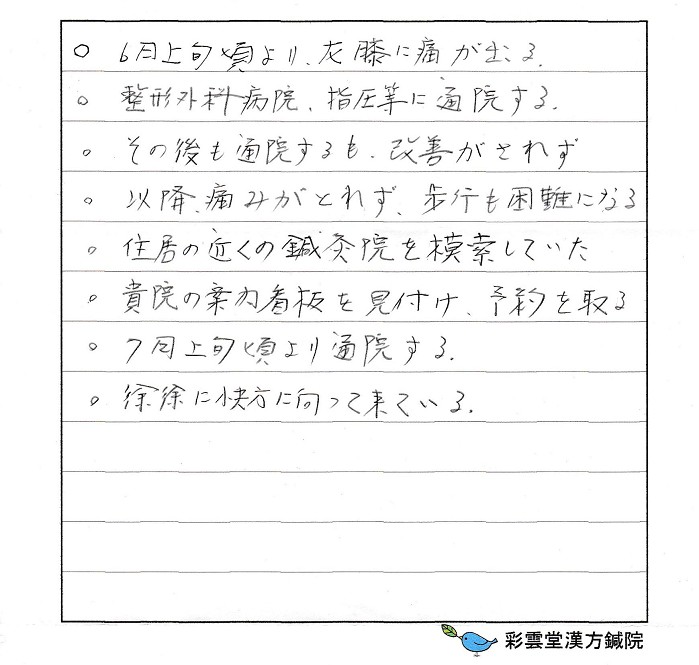 ○ 6月上旬頃より、左膝に痛が出る.
○ 整形外科病院、指圧等に通院する.
○ その後も通院するも、改善がされず
○ 以降、痛みがとれず、歩行も困難になる
○ 住居の近くの鍼灸院を模索していた
○ 貴院の案内看板を見付け、予約を取る
○ 7月上旬頃より通院する.
○ 徐徐に快方に向って来ている.
彩雲堂漢方鍼院